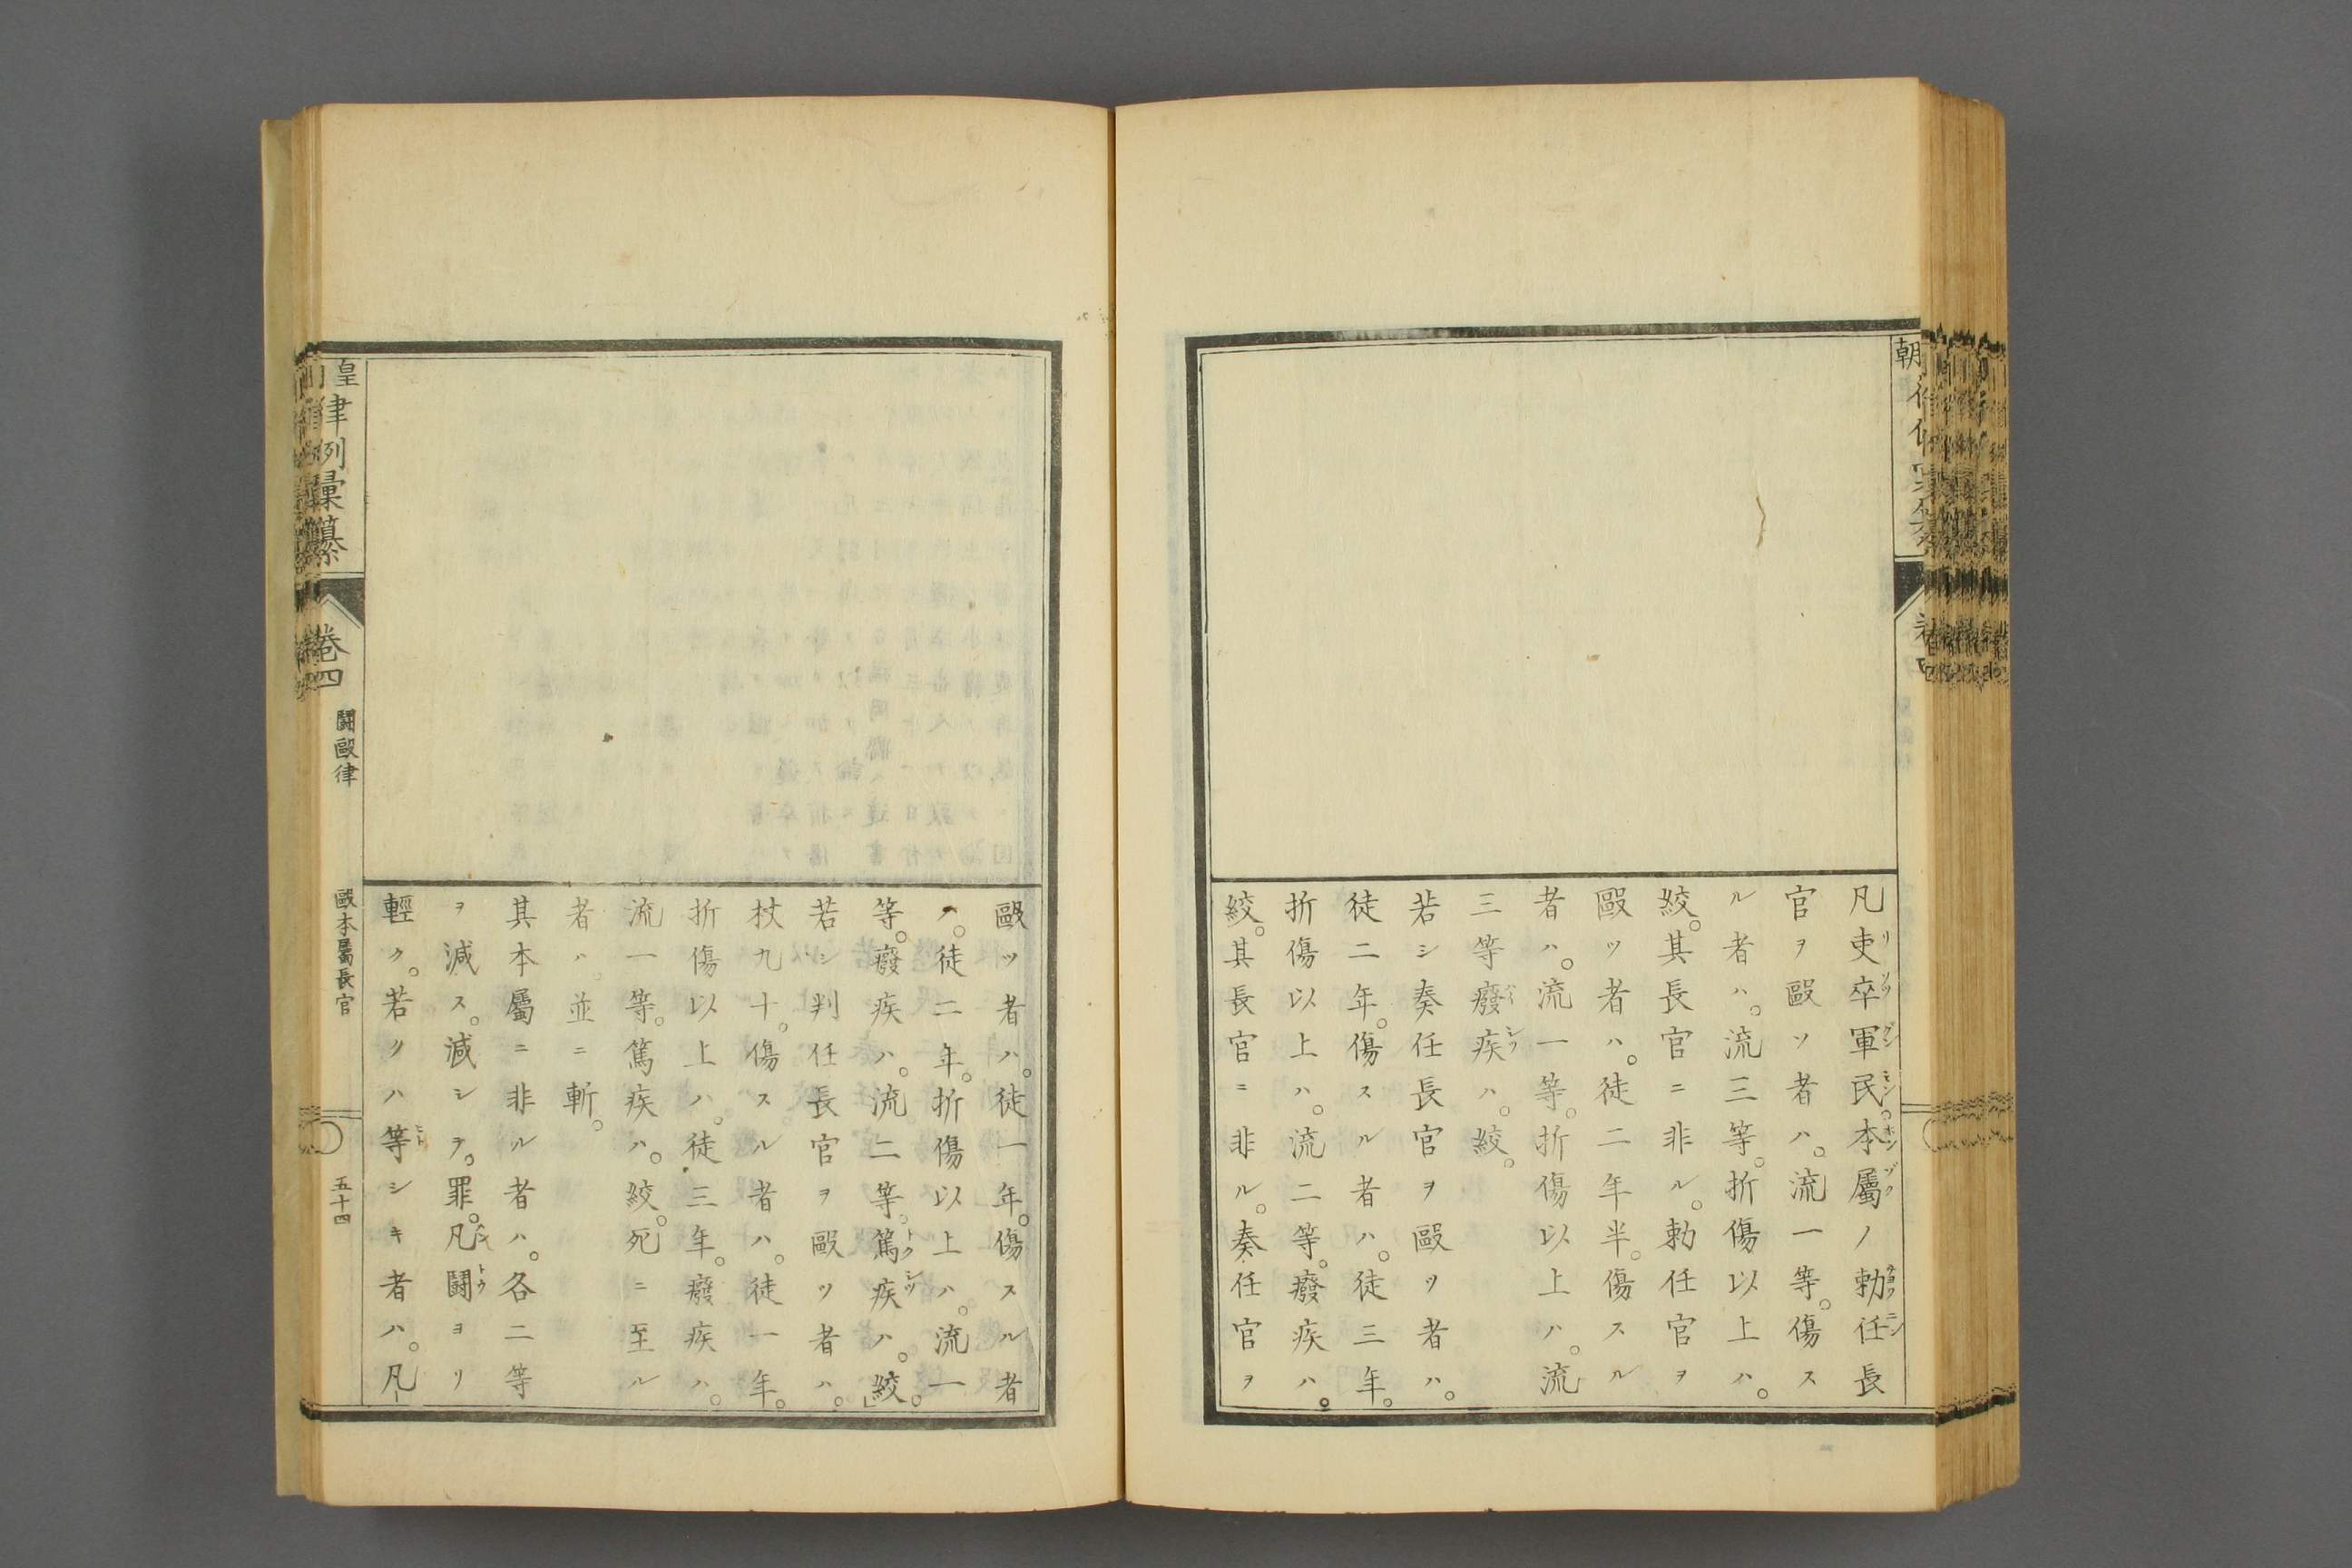 凡吏卒軍民。本屬ノ勅任長
官ヲ毆ツ者ハ。流一等。傷ス
ル者ハ。流三等。折傷以上ハ。
絞。其長官ニ非ル。勅任官ヲ
毆ツ者ハ。徒二年半。傷スル
者ハ。流一等。折傷以上ハ。流
三等。癈疾ハ。絞。
若シ奏任長官ヲ毆ツ者ハ。
徒二年。傷スル者ハ。徒三年。
折傷以上ハ。流二等。癈疾ハ。
絞。其長官ニ非ル。奏任官ヲ
毆ツ者ハ。徒一年。傷スル者
ハ。徒二年。折傷以上ハ。流一
等。癈疾ハ。流二等。篤疾ハ。絞。」
若シ判任長官ヲ毆ツ者ハ。
杖九十。傷スル者ハ。徒一年。
折傷以上ハ。徒三年。癈疾ハ。
流一等。篤疾ハ。絞。死ニ至ル
者ハ。並ニ斬。
其本屬ニ非ル者ハ。各二等
ヲ減ス。減シヲ。罪。凡鬪ヨリ
輕ク。若クハ等シキ者ハ。凡
皇 律例彙纂
卷四
鬪毆律
毆本屬長官
五十四